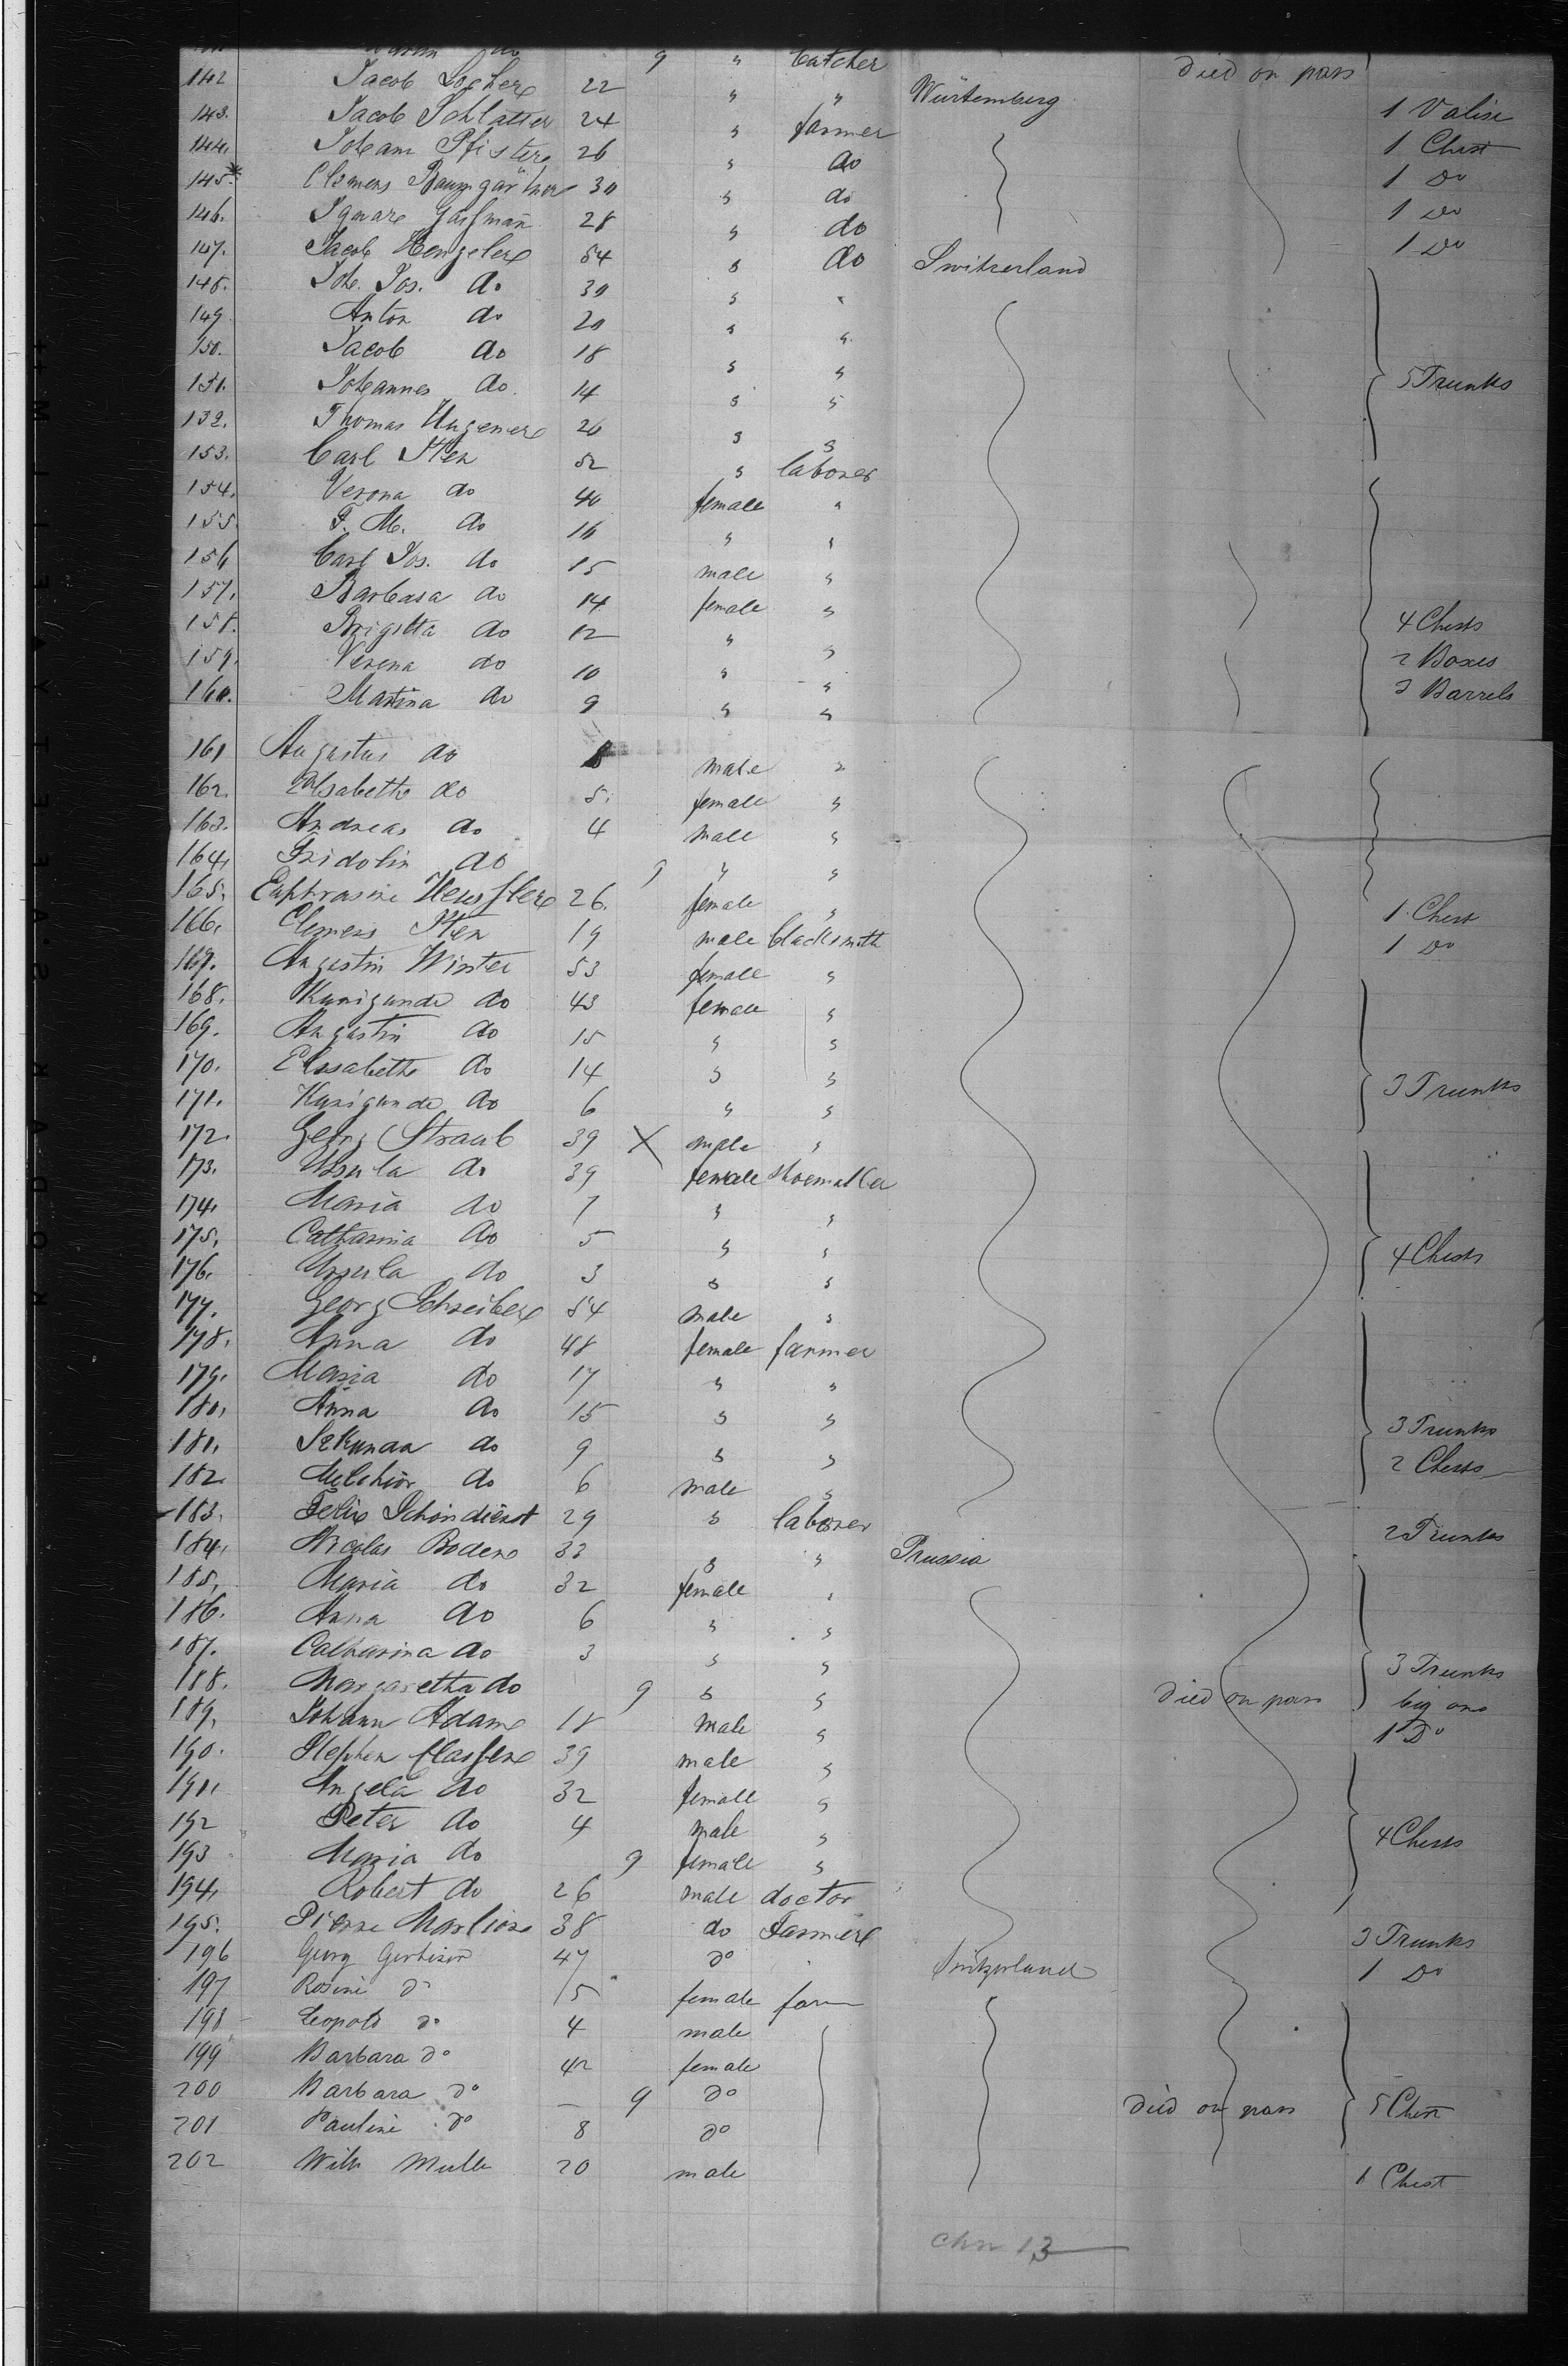 do 9 " butcher died on pass
142 Jacob Locher 22 " " Würtemberg 1 Valise
143. Jacob Schlatter 24 " farmer 1 Chest
144. Joham Pfister 26 " do 1 Do
145. Clemens Baumgartner 30 " do 1 Do
146. 28 " do 1 Do
147. Jacob Hengeler 54 " do Switzerland
148. Joh. Jos. do 30 " "
149. Anton do 20 " "
150. Jacob do 18 " "
151. Johannes do 14 " " 5 Trunks
152. Thomas 26 " "
153. Carl Iten 52 " laborer
154. Verona do 40 female "
155. F. M. do 16 " "
156 Carl Jos. do 15 male "
157. Barbara do 14 female "
158. Brigitta do 12 " " 4 Chests
159. Verena do 10 " " 2 Boxes
160. Marina do 9 " " 3 Barrels
161 Augustus do 8 male "
162. Elsabeth do 5. female "
163. Andreas do 4 male "
164. Fridolin do 9 " "
165. Euphrasine 26. female " 1 Chest
166. Clemens Iten 19 male blacksmith 1 Do
167. Augustin Winter 53 female "
168. Kunigunde do 43 female "
169. Augustin do 15 " "
170. Elssabeth do 14 " " 3 Trunks
171. Kunigunde do 6 " "
172. Georg Straub 39 X male "
173. Ursula do 39 female shoemaker
174. Maria do 7 " "
175. Catharina do 5 " " 4 Chests
176. Ursula do 3 " "
177. Georg Schreiber 54 male "
178. Anna do 48 female farmer
179. Maria do 17 " "
180. Anna do 15 " " 3 Trunks
181. Sekunda do 9 " " 2 Chests
182 Melchior do 6 male "
183. Felix Schöndienst 29 " laborer 2 Trunks
184. Nicolas Boden 33 " " Prussia
185. Maria do 32 female "
186. Anna do 6 " "
187. Catharina do 3 " " 3 Trunks
188. Margaretha do 9 " " died on pass big one
189. Johann Adam 18 male " 1 Do
190. Stephen 39 male "
191. Angela do 32 female "
192 Peter do 4 male " 4 Chests
193 Maria do 9 female "
194. Robert do 26 male doctor
195. Pierre 38 do Farmer 3 Trunks
196 Georg 47 do Switzerland 1 Do
197 Rosine do 15 female farm
198 Leopold do 4 male
199 Barbara do 42 female
200 Barbara do — 9 do died on pass 5 Chest
201 Pauline do 8 do
202 Wilh Mulle 20 male 1 Chest
13